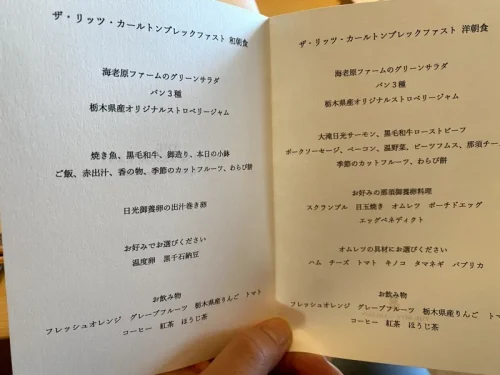 ザ・リッツ・カールトンブレックファスト 和朝食
海老原ファームのグリーンサラダ
パン3種
栃木県産オリジナルストロベリージャム
焼き魚、黒毛和牛、御造り、本日の小鉢
ご飯、赤出汁、香の物、季節のカットフルーツ、わらび餅
日光御養卵の出汁巻き卵
お好みでお選びください
温度卵 黒千石納豆
お飲み物
フレッシュオレンジ グレープフルーツ 栃木県産りんご トマト
コーヒー 紅茶 ほうじ茶
ザ・リッツ・カールトンブレックファスト 洋朝食
海老原ファームのグリーンサラダ
パン3種
栃木県産オリジナルストロベリージャム
大滝日光サーモン、黒毛和牛ローストビーフ
ポークソーセージ、ベーコン、温野菜、ビーツフムス、那須チー
季節のカットフルーツ、わらび餅
お好みの那須御養卵料理
スクランブル 目玉焼き オムレツ ポーチドエッグ
エッグベネディクト
オムレツの具材にお選びください
ハム チーズ トマト キノコ タマネギ パプリカ
お飲み物
フレッシュオレンジ グレープフルーツ 栃木県産りんご トマ
コーヒー 紅茶 ほうじ茶